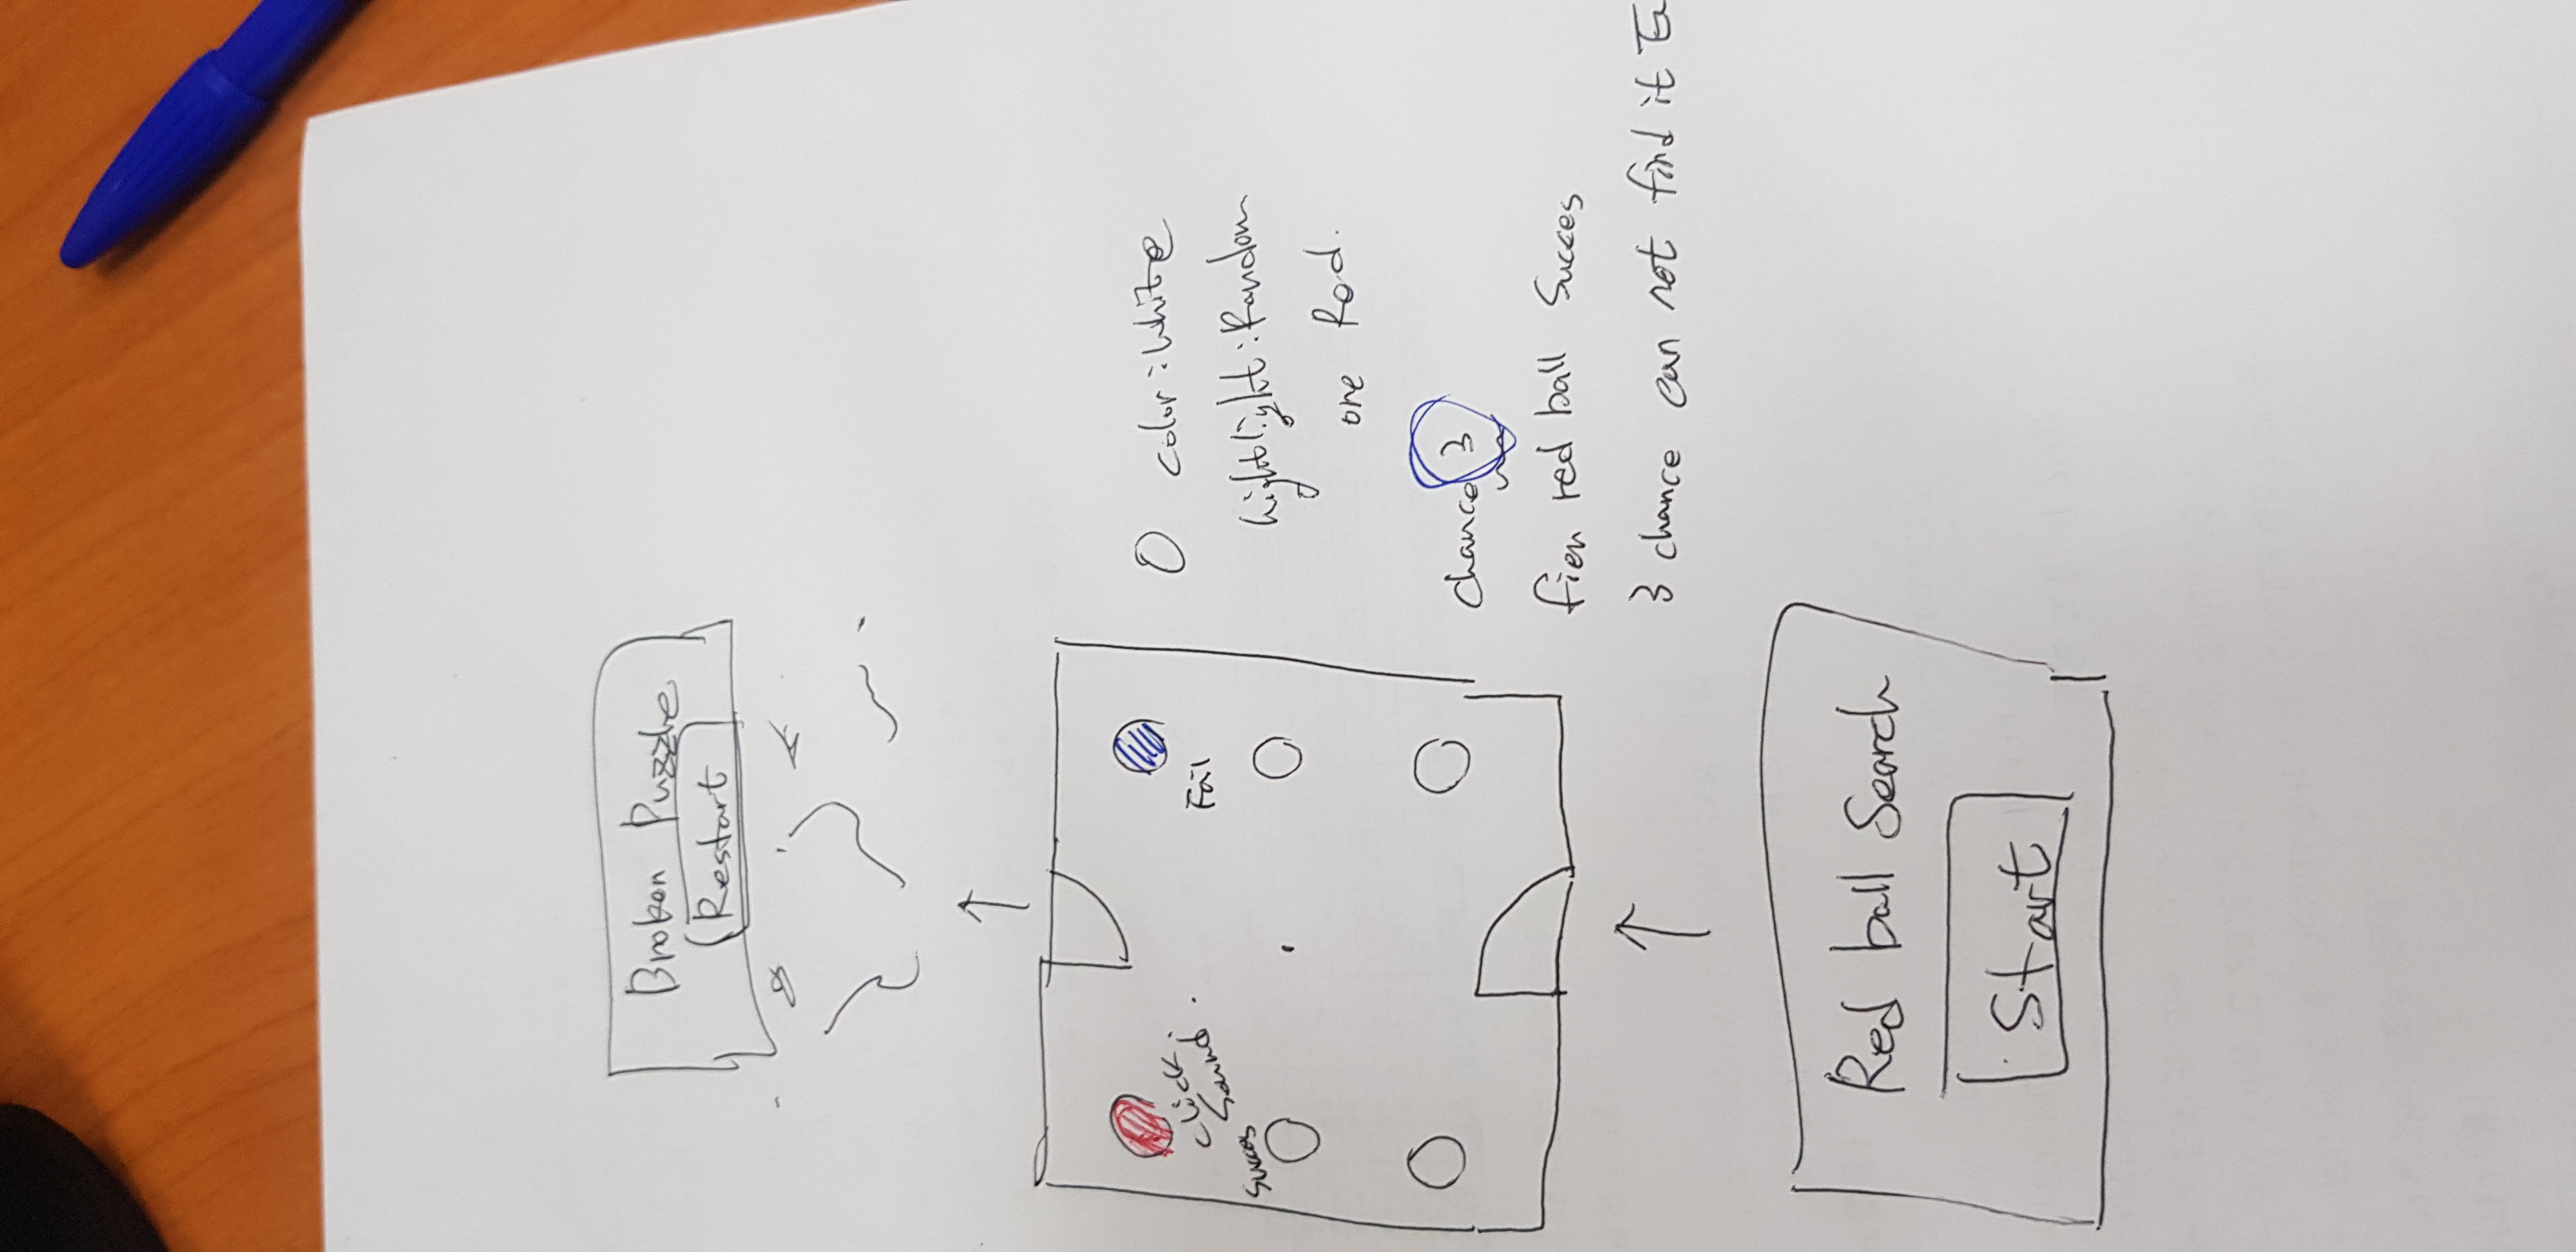 Broken Puzzle
Restart
Click
Sound
Succes
Fail
color : White
hightlight : Random
one Red.
chance 3
red ball Succes
3 chance can not find it
Red ball Search
Start